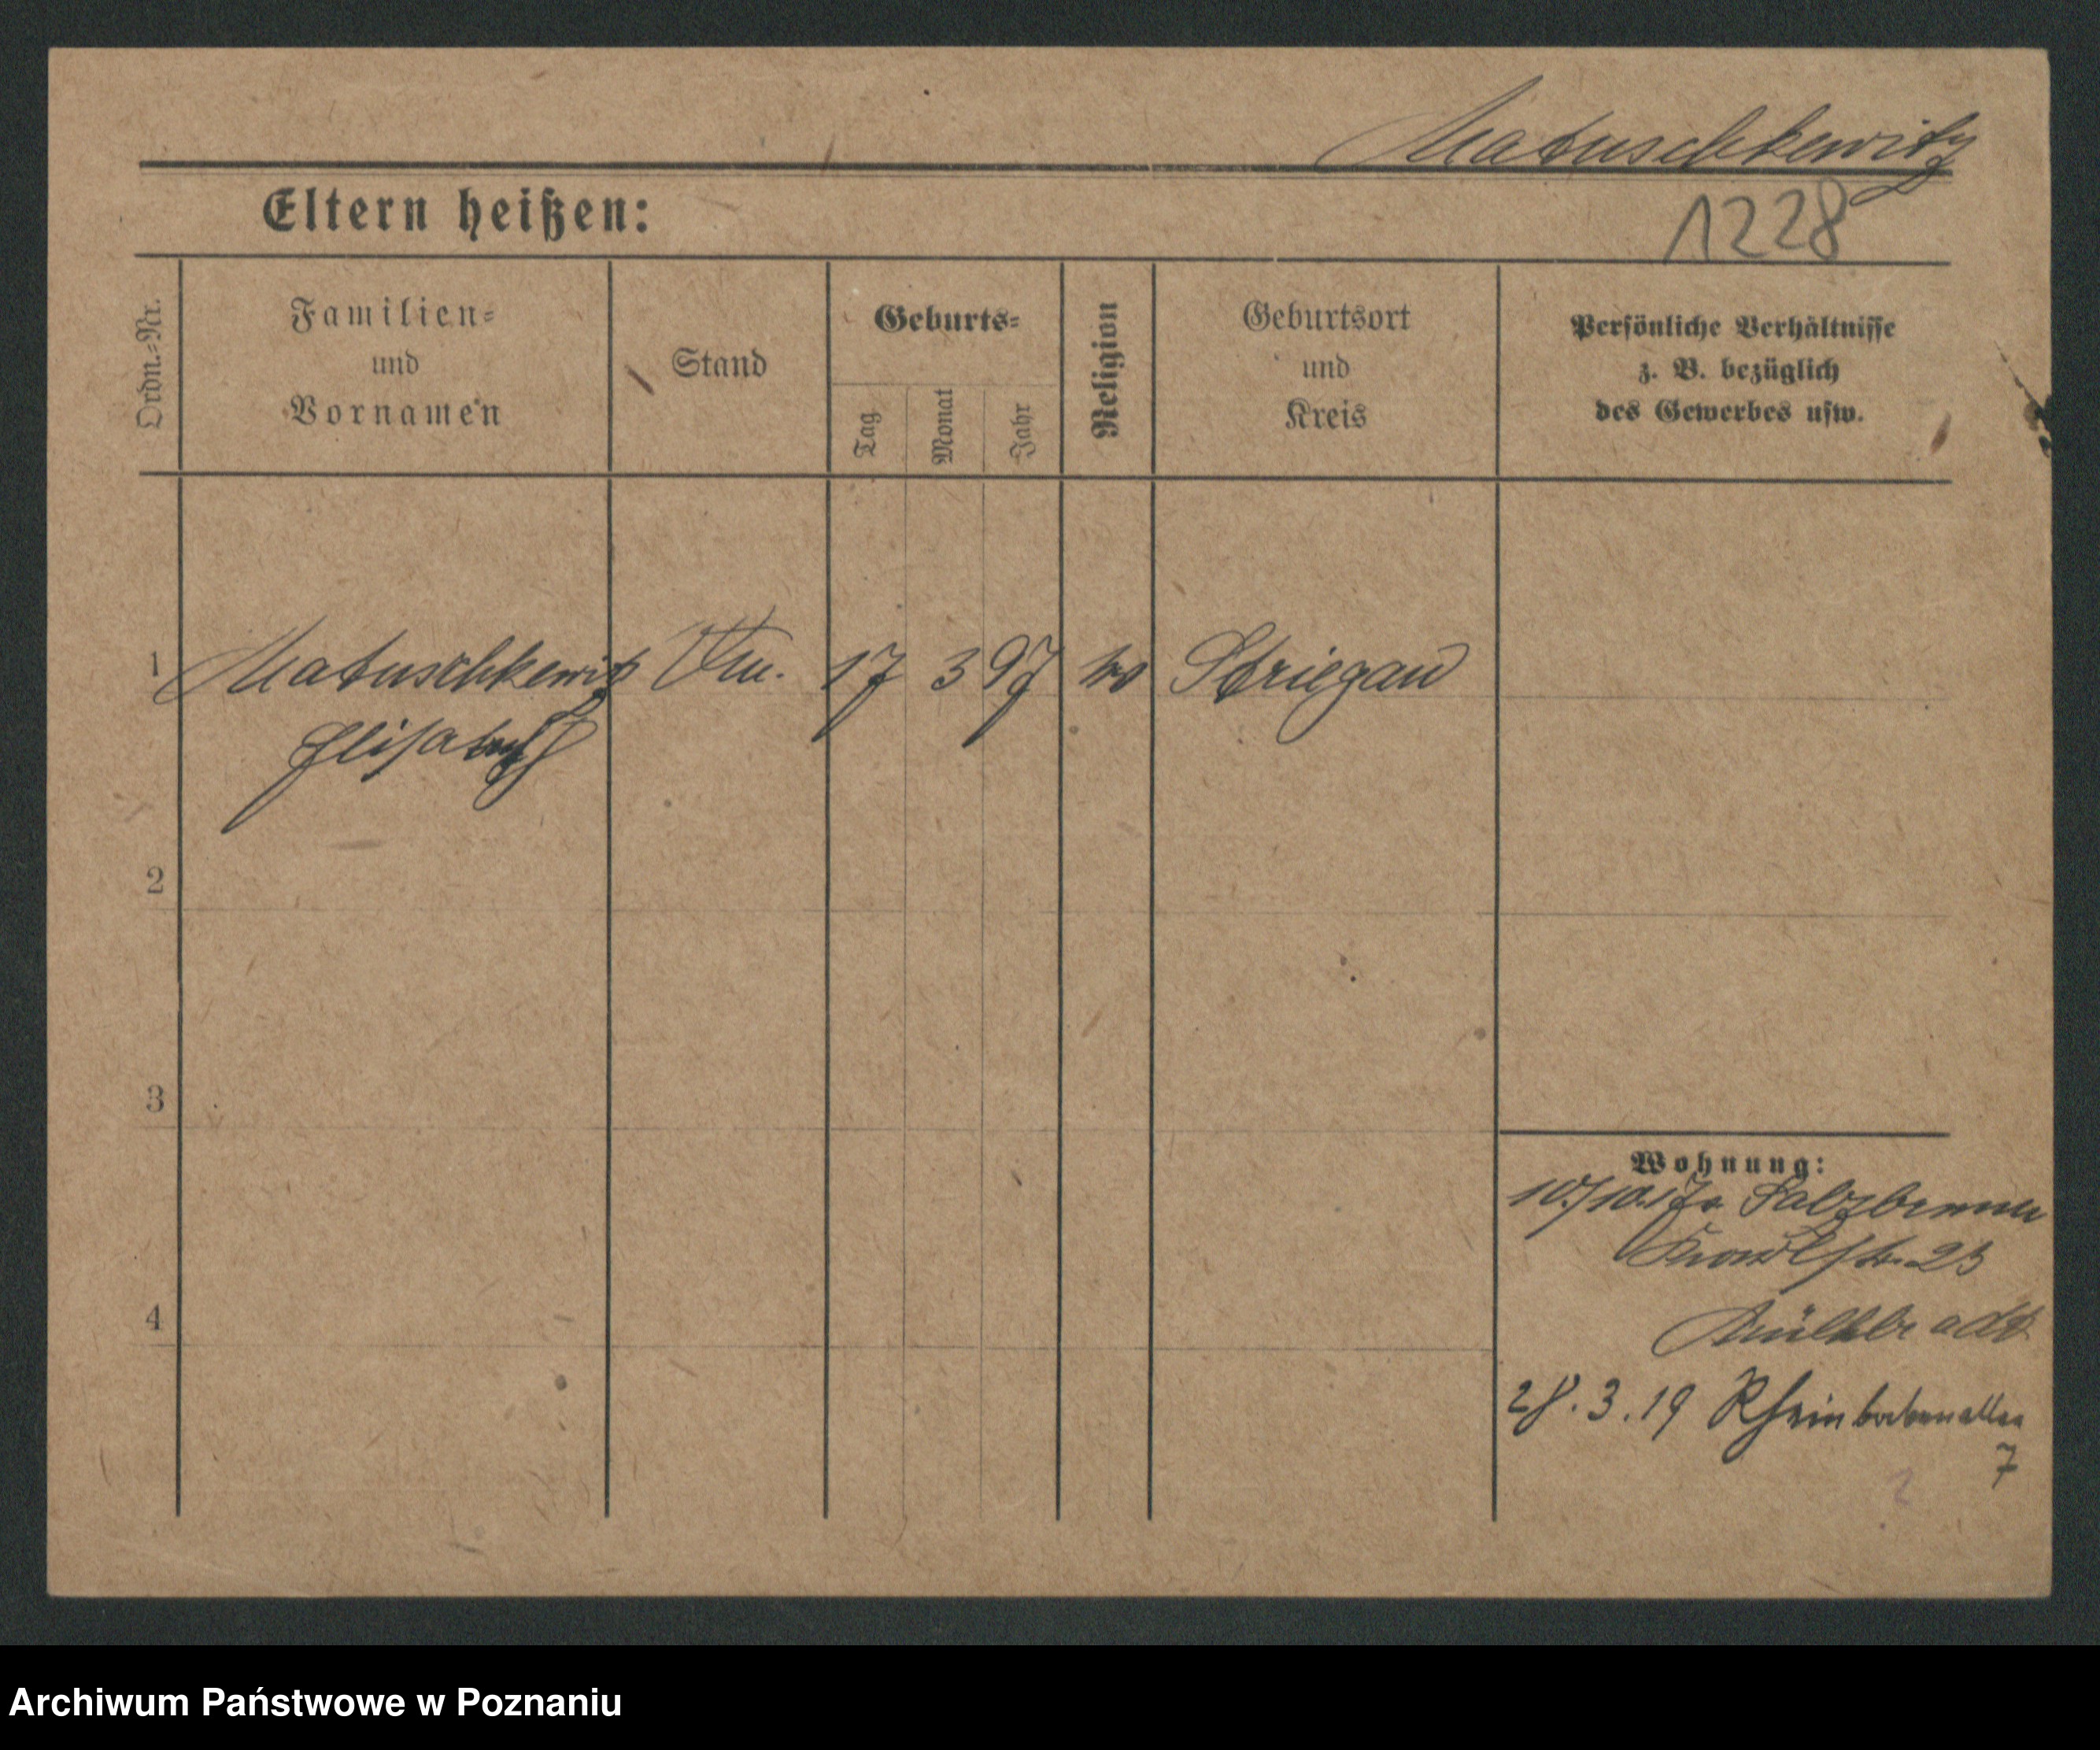 Matuschkewitz
Eltern heißen:
1228
Ordn.-Nr.
Familien-
und
Vornamen
Stand
Geburts-
Tag
Monat
Jahr
Religion
Geburtsort
und
Kreis
Persönliche Verhältnisse
z. B. bezüglich
des Gewerbes usw.
1 Matuschkewitz 17 3 97 Striegau
Elisabeth
2
3
4
Wohnung:
Salzbrunn
23
28.3.19 Rheinbabenallee
7
Archiwum Państwowe w Poznaniu